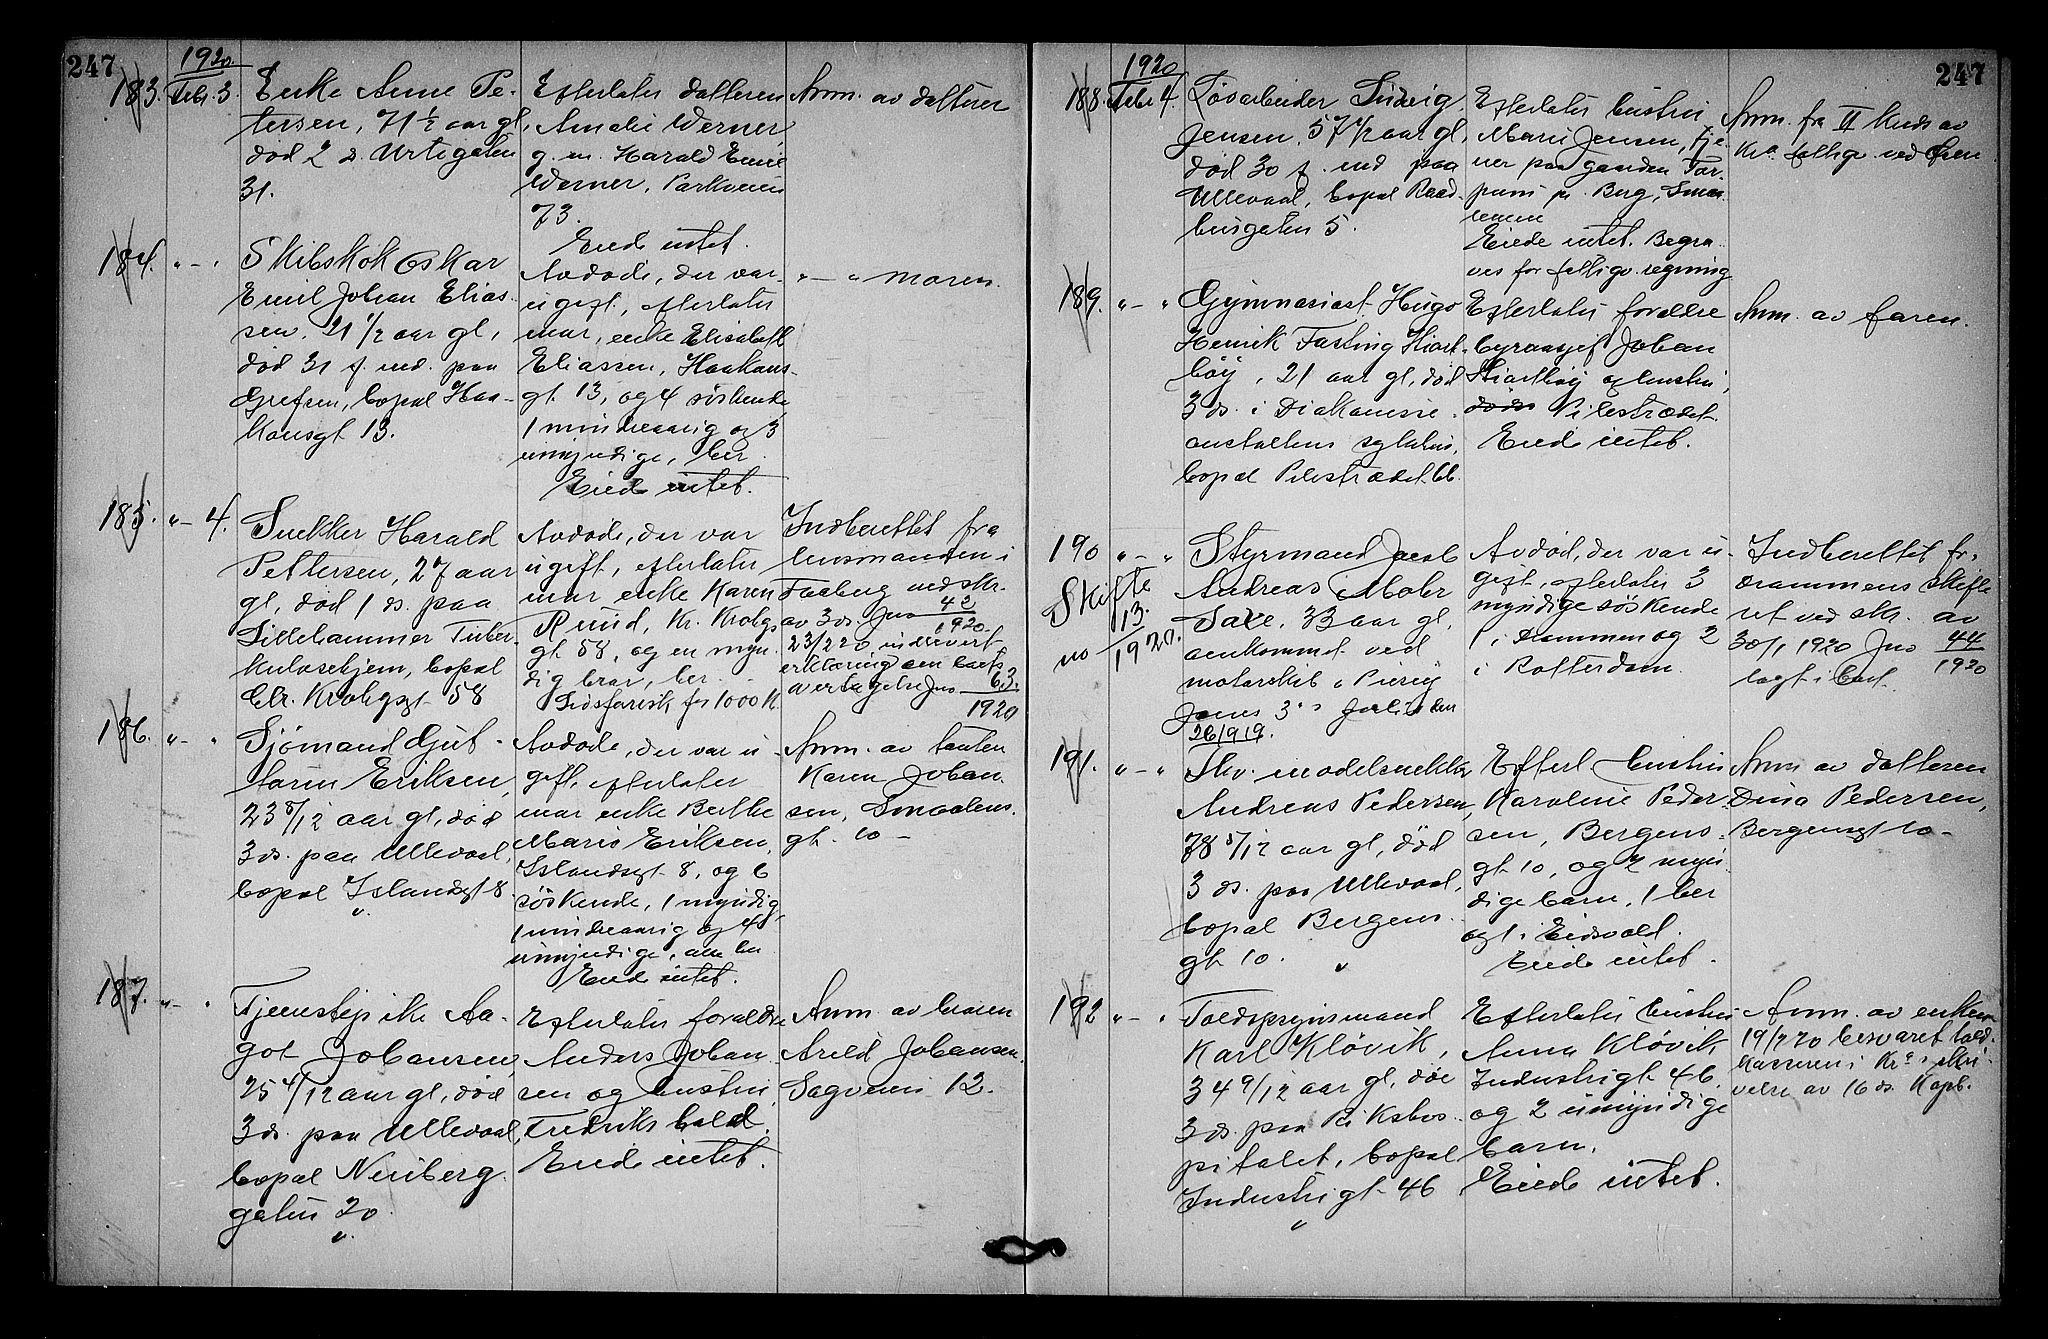 247
1920
183. Febr. 3.
Enke Anne Pe-
tersen, 71 1/2 aar gl,
død 2 ds. Urtegaten
31.
Efterlater datteren
Amalie Werner,
g. m. Harald Emil
Werner, Parkveien
73.
Eiede intet.
Anm. av datteren
184. " - "
Skibskok Oskar
Emil Johan Elias-
sen, 21 1/2 aar gl,
død 31 f. md. paa
Grefsen, bopæl Haa-
konsgt 13.
Avdøde, der var
ugift, efterlater
mor, enke Elisabeth
Eliassen, Haakons-
gt 13, og 4 søskende,
1 mindreaarig og 3
umyndige, her.
Eiede intet.
" - " moren.
185. " - 4.
Snekker Harald
Pettersen, 27 aar
gl, død 1 ds. paa
Lillehammer Tuber-
kulosehjem, bopæl
Chr. Krohgsgt 58
Avdøde, der var
ugift, efterlater
mor enke Karen
Ruud, Kr. Krohgs
gt. 58, og en myn-
dig bror, her.
Livsforsik for 1000 K.
Indberettet fra
lensmanden i
Faaberg ved skr.
av 3 ds. Jno 42/1920.
23/2 20, indlevert
erklæring om boets
overtagelse Jno 63./1920
186. " - "
Sjømand Gus-
taun Eriksen,
23 8/12 aar gl, død
3 ds. paa Ullevaal,
bopæl Islandsgt 8.
"
Avdøde, der var u-
gift, efterlater
mor enke Berthe
Marie Eriksen,
Islandsgt 8, og 6
søskende, 1 myndig,
1 mindreaarig og 4
umyndige, alle her
Eiede intet.
Anm. av tanten
Karen Johan-
sen, Smaalens-
gt. 10 -
187. " - "
Tjenestepike Aa-
got Johansen,
25 4/12 aar gl, død
3 ds. paa Ullevaal,
bopæl Nenberg-
gaten 20.
"
Efterlater forældre
Anders Johan-
sen og hustru,
Fredrikshald.
Eiede intet.
Anm. av broren
Arild Johansen,
Sagveien 12.
247
1920
188. Febr. 4.
Løsarbeider Ludvig
Jensen, 57 1/2 aar gl,
død 30 f. md paa
Ullevaal, bopæl Raad-
husgaten 5.
Efterlater hustru
Marie Jensen, tje-
ner paa gaarden Tor-
pum pr. Berg, Smaa-
lenene
Eiede intet. Begra-
ves for fattigv. regning
Anm. fra II Kreds av
Kra. fattigv. ved
189. " - "
Gymnasiast Hugo
Henrik Fasting Hiort-
høy, 21 aar gl, død
3 ds. i Diakonisse-
anstaltens sykehus,
bopæl Pilestrædet
Efterlater forældre
byraasjef Johan
Hiorthøy og hustru,
Pilestrædet
Eiede intet.
Anm. av faren.
190 " - "
Skifte
no 13./1920.
Styrmand Jacob
Andreas Mohr
Saxe, 33 aar gl,
omkommet ved
motorskib "
Jones 3"s forlis den
26/9 19.
Avdød, der var u-
gift, efterlater 3
myndige søskende
1 i Drammen og 2
i Rotterdam
Indberettet fr.
Drammens skifte
ret ved skr. av
30/1 1920 Jno 44/1920
lagt i boet.
191. " - "
Fhv. modelsnekker
Andreas Pedersen,
78 5/12 aar gl, død
3 ds. paa Ullevaal,
bopæl Bergens-
gt 10.
"
Efterl hustru
Karoline Peder-
sen, Bergens-
gt 10, og 2 myn-
dige barn, 1 her
og 1 i Eidsvold.
Eiede intet.
Anm av datteren
Dina Pedersen,
Bergensgt 10 -
192 " - "
Toldopsynsmand
Karl Kløvik,
34 9/12 aar gl, død
3 ds. paa Rikshos-
pitalet, bopæl
Industrigt 46
"
Efterlater hustru
Anna Kløvik
Industrigt 46,
og 2 umyndige
barn.
Eiede intet.
Anm. av enken
19/2 20 besvaret told-
kasseren i Kra. skri-
velse av 16 ds. Kopb.